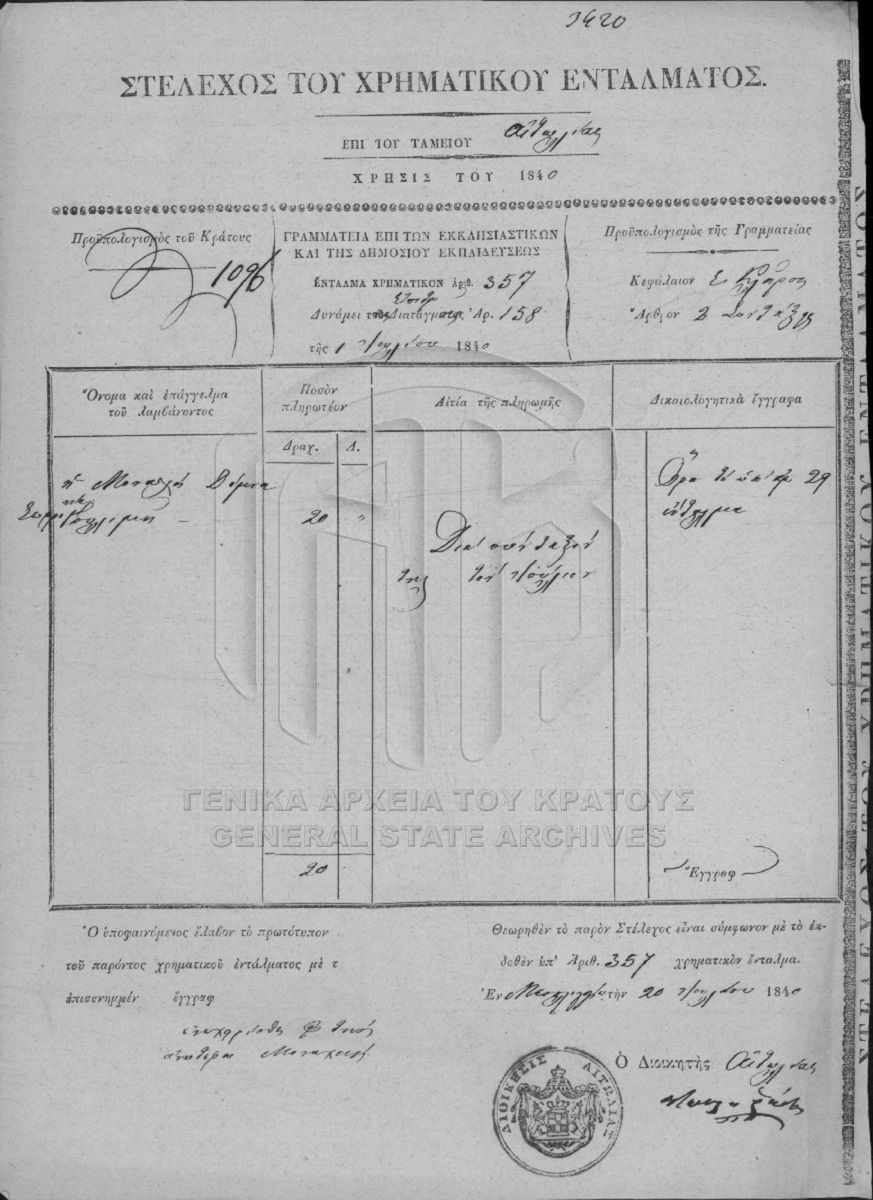 3420
ΣΤΕΛΕΧΟΣ ΤΟΥ ΧΡΗΜΑΤΙΚΟΥ ΕΝΤΑΛΜΑΤΟΣ.
ΕΠΙ ΤΟΥ ΤΑΜΕΙΟΥ Αἰτωλίας
ΧΡΗΣΙΣ ΤΟΥ 1840
Προϋπολογισμὸς τοῦ Κράτους
1096
ΓΡΑΜΜΑΤΕΙΑ ΕΠΙ ΤΩΝ ΕΚΚΛΗΣΙΑΣΤΙΚΩΝ
ΚΑΙ ΤΗΣ ΔΗΜΟΣΙΟΥ ΕΚΠΑΙΔΕΥΣΕΩΣ
ΕΝΤΑΛΜΑ ΧΡΗΜΑΤΙΚΟΝ ἀριθ. 357
Δυνάμει Διατάγματος Ἀρ. 158
τῆς 1 Ἰουλίου 1840
Προϋπολογισμὸς τῆς Γραμματείας
Κεφάλαιον Ε Κλῆρος
Ἄρθρον 2 Συντάξεις
Ὄνομα καὶ ἐπάγγελμα
τοῦ λαμβάνοντος
Ποσὸν
πληρωτέον
Αἰτία τῆς πληρωμῆς
Δικαιολογητικὰ ἔγγραφα
Δραχ. Λ.
ἡ Μοναχὴ Δόμνα
20 "
Διὰ σύνταξίν
της τὸν Ἰούλιον
Ὅρα τὸ ὑπ' ἀρ 29
ἔνταλμα
20
Ἔγγραφ
Ὁ ὑποφαινόμενος ἔλαβον τὸ πρωτότυπον
τοῦ παρόντος χρηματικοῦ ἐντάλματος μὲ τ
ἐπισυνημμέν ἔγγραφ
Μοναχὴ
Θεωρηθὲν τὸ παρὸν Στέλεχος εἶναι σύμφωνον μὲ τὸ ἐκ-
δοθὲν ὑπ' Ἀριθ. 357 χρηματικὸν ἔνταλμα.
Ἐν Μεσολογγίῳ τὴν 20 Ἰουλίου 1840
Ὁ Διοικητὴς Αἰτωλίας
ΔΙΟΙΚΗΣΙΣ ΑΙΤΩΛΙΑΣ
ΓΕΝΙΚΑ ΑΡΧΕΙΑ ΤΟΥ ΚΡΑΤΟΥΣ
GENERAL STATE ARCHIVES